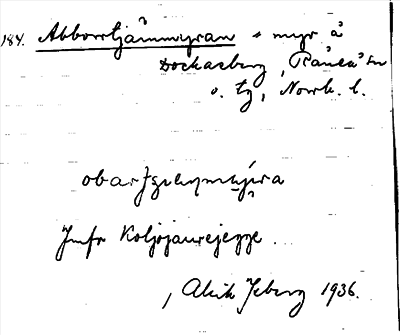 184. Abborrtjärnmyran = myr å
Dockasberg, Råneå sn
o. tg, Norrb. l.
Jmfr Koljojaurejegge.
, Alrik Isberg 1936.